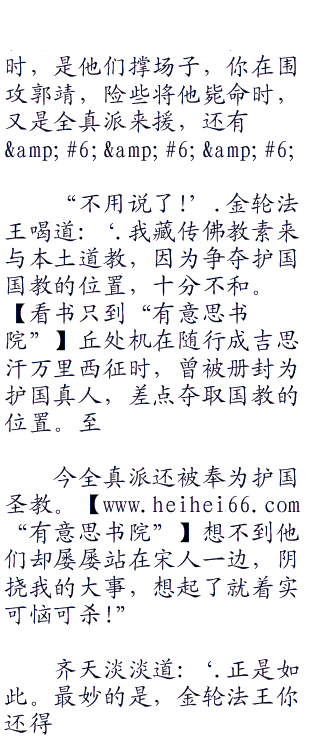 时，是他们撑场子，你在围
攻郭靖，险些将他毙命时，
又是全真派来援，还有
&amp;#6;&amp;#6;&amp;#6;
“不用说了！’.金轮法
王喝道：‘.我藏传佛教素来
与本土道教，因为争夺护国
国教的位置，十分不和。
【看书只到“有意思书
院”】丘处机在随行成吉思
汗万里西征时，曾被册封为
护国真人，差点夺取国教的
位置。至
今全真派还被奉为护国
圣教。【www.heihei66.com
“有意思书院”】想不到他
们却屡屡站在宋人一边，阴
挠我的大事，想起了就着实
可恼可杀！”
齐天淡淡道：‘.正是如
此。最妙的是，金轮法王你
还得